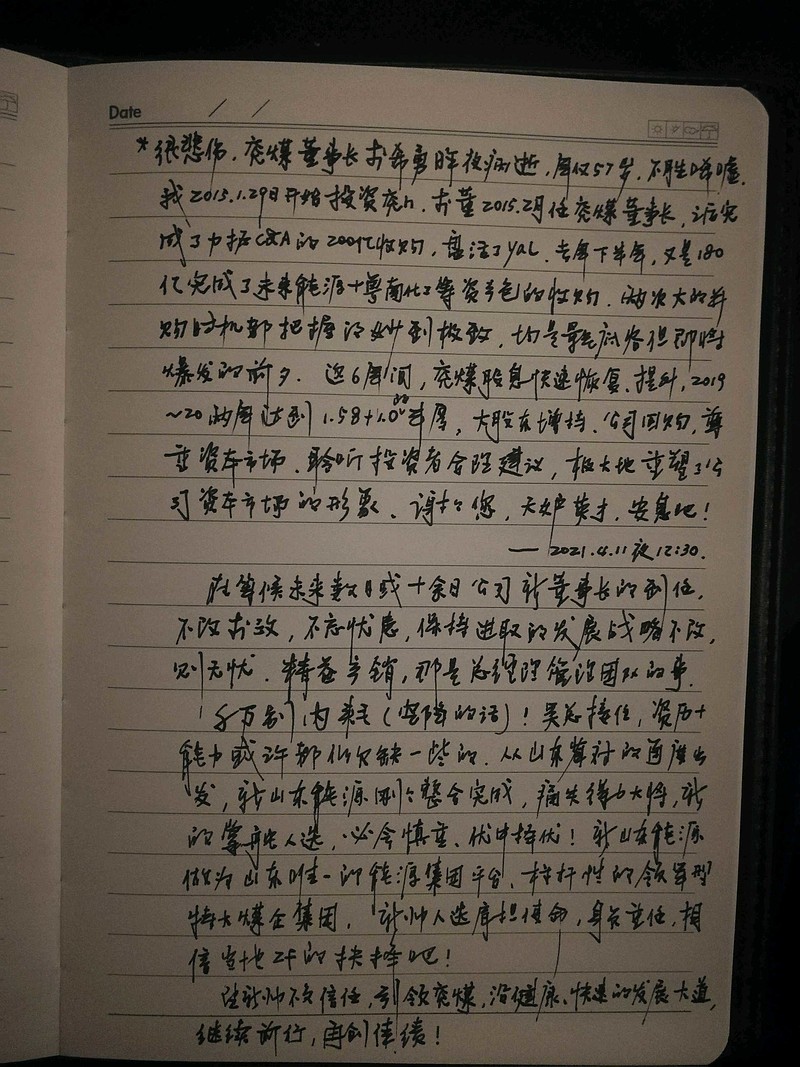 Date / /
*很悲伤，兖煤董事长李希勇昨夜病逝，年仅57岁，不胜唏嘘。
我2015.1.29日开始投资兖H，李董2015.2月任兖煤董事长，
成了力拓C&A的200亿收购，盘活了YAL，去年下半年，又是180
亿完成了未来能源+鲁南化工等资产包的收购，两次大的并
购时机都把握得妙到极致，均是
爆发的前夕。近6年间，兖煤股息快速恢复、提升，2019
~20两年达到1.58+1.0的丰厚，大股东增持、公司回购，尊
重资本市场、聆听投资者合理建议，极大地重塑了公
司资本市场的形象、谢谢您，天妒英才，安息吧！
— 2021.4.11夜12:30.
在等候未来数日或十余日公司新董事长的到任，
不改李政，不忘忧患，保持进取的发展战略不改，
则无忧。精益产销，那是总经理管理团队的事。
千万别内耗（空降的话）！吴总接任，资历+
能力或许都似欠缺一些的。从山东省府的角度出
发，新山东能源刚刚整合完成，痛失得力大将，新
的掌舵人选，必会慎重、优中择优！新山东能源
做为山东唯一的能源集团平台、标杆性的领军型
特大煤企集团，新帅人选肩担使命，身负重任，相
信当地ZF的抉择吧！
望新帅不负信任，引领兖煤，沿健康、快速的发展大道，
继续前行，再创佳绩！